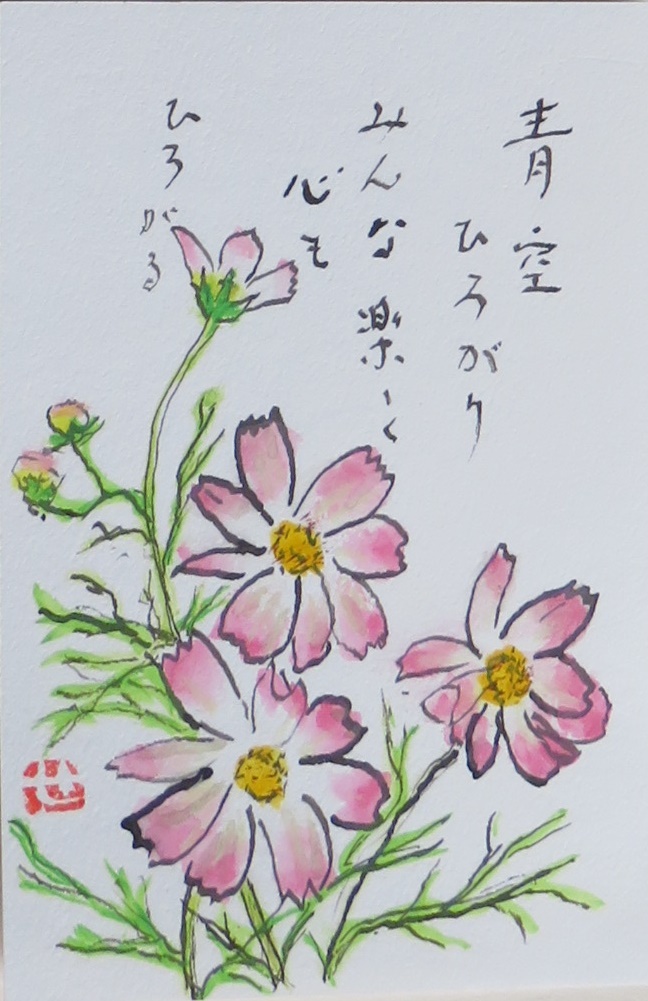 青空
ひろがり
みんな楽しく
心も
ひろがる